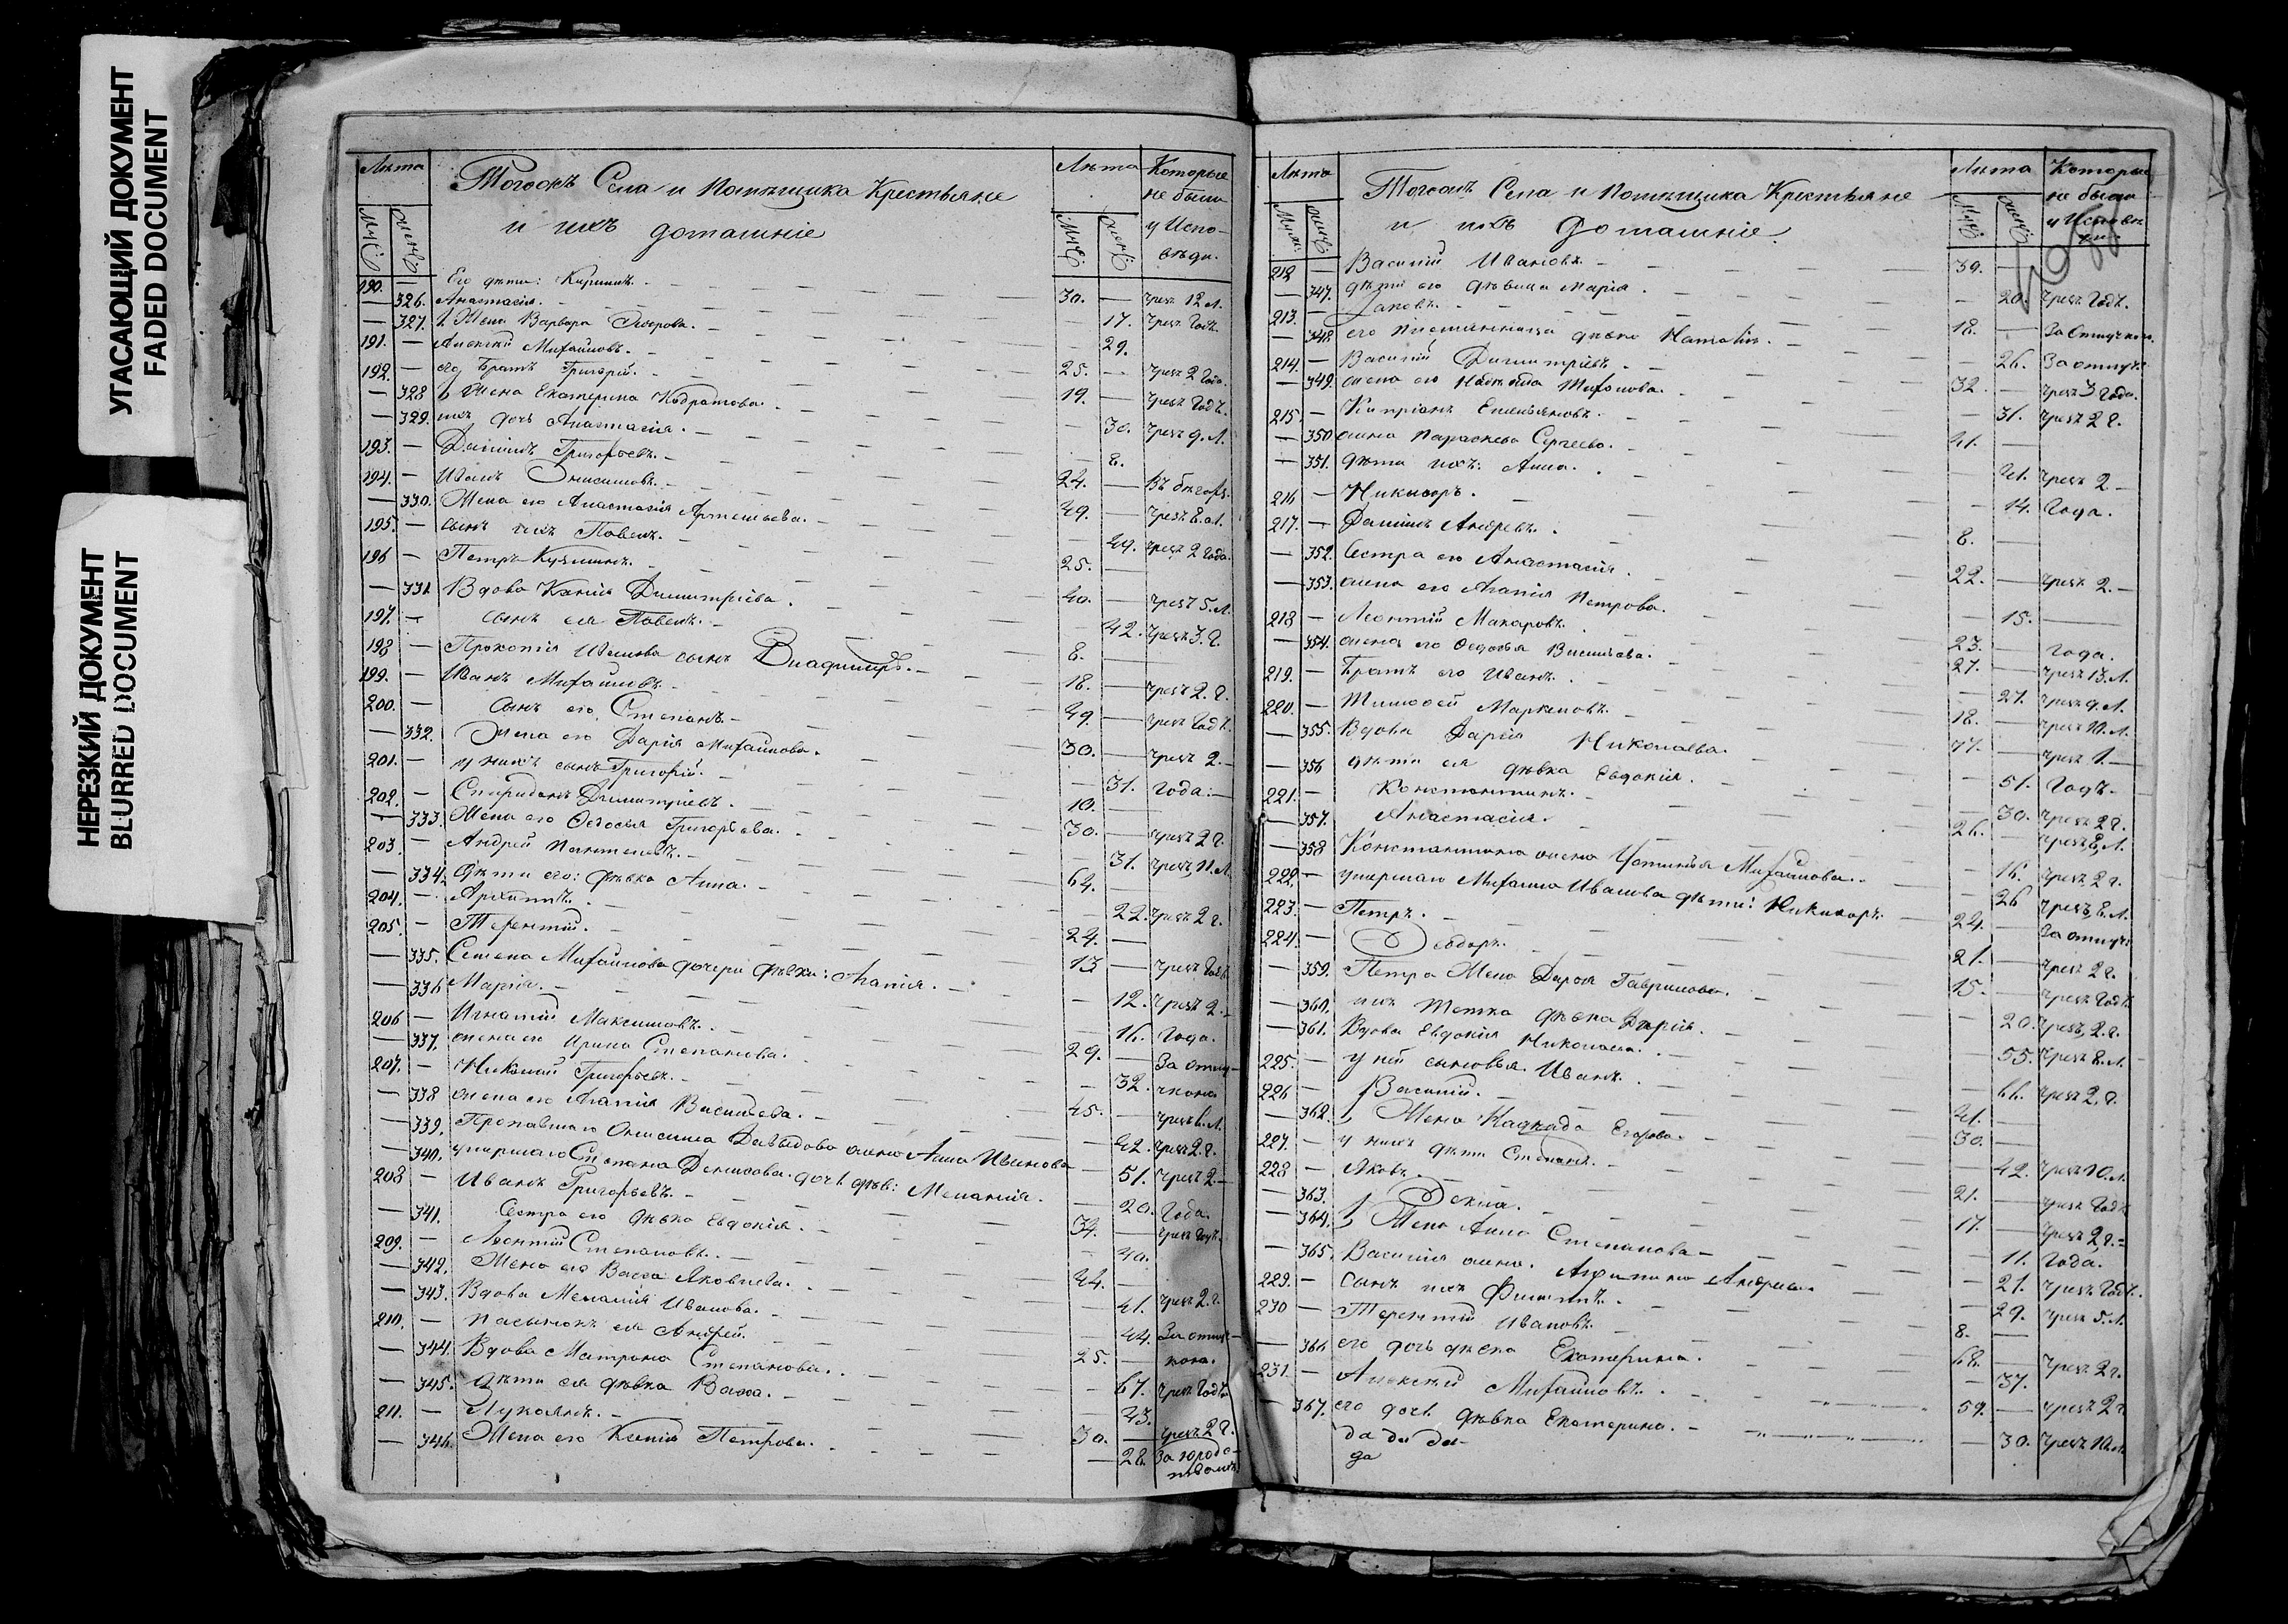 УГАСАЮЩИЙ ДОКУМЕНТ
FADED DOCUMENT
НЕРЕЗКИЙ ДОКУМЕНТ
BLURRED DOCUMENT
Лѣта Тогожъ Села и Помѣщика Крестьяне Лѣта Которые
не были
и ихъ домашніе у Испо-
вѣди.
190. — Его дѣти: Кирилъ. 30. — чрезъ 12 л.
— 326. Анастасія. — 17. чрезъ Годъ.
— 327. Жена Варвара Ѳедорова. — 29.
191. — Алексѣй Михайловъ. 25. — чрезъ 2 Года.
192. — его Братъ Григорій. 19. — чрезъ Годъ.
— 328 Жена Екатерина Кодратова. — 30. чрезъ 9. л.
— 329. ихъ дочь Анастасія. — 8.
193. — Даніилъ Григорьевъ. 24. — Въ бѣгахъ.
194. — Иванъ Онисимовъ. 49. — чрезъ 8. л.
— 330. Жена его Анастасія Артемьева. — 49. чрезъ 2 Года.
195. — сынъ ихъ Павелъ. 25. —
196 — Петръ Кузминъ. 40. — чрезъ 5. л.
— 331 Вдова Ксенія Димитріева. — 42. чрезъ 3. г.
197. — сынъ ея Павелъ. 8. —
198 — Прокопія Иванова сынъ Владимиръ. 18. — чрезъ 2. г.
199. — Иванъ Михайловъ. 49. — чрезъ Годъ.
200. — сынъ его Степанъ. 30. — чрезъ 2. —
— 332. Жена его Дарія Михайлова. — 31. Года.
201. — у нихъ сынъ Григорій. 10. —
202. — Спиридонъ Димитріевъ. 30. — чрезъ 2 г.
— 333. Жена его Ѳедосья Григорьева. — 31. чрезъ 11. л.
203. — Андрей Пантелевъ. 64. —
— 334. Дѣти его: дѣвка Анна. — 22. чрезъ 2 г.
204. — Архиппъ. 24. —
205. — Терентій. 13 — чрезъ Годъ.
— 335. Семена Михайлова дочери дѣвки: Агапія. — 12. чрезъ 2. —
— 336 Марія. — 16. Года.
206 — Игнатій Максимовъ. 29. — За отлу-
— 337. жена его Ирина Степанова. — 32. чкою
207. — Николай Григорьевъ. 45. — чрезъ 6. л.
— 338 жена его Агапія Васильева. — 42. чрезъ 2. г.
— 339. Пропавшаго Онисима Давыдова жена Анна Иванова — 51. чрезъ 2 —
— 340. умершаго Степана Денисова дочь дѣв: Меланія. — 20. Года.
208 — Иванъ Григорьевъ. 34. — чрезъ Годъ.
— 341. Сестра его дѣвка Евдокія. — 40.
209. — Леонтій Степановъ. 44. —
— 342. Жена его Васса Яковлева. — 41. чрезъ 2. г.
— 343. Вдова Меланія Иванова. — 44. За отлуч-
210. — пасынокъ ея Андрей. 25. — кою.
— 344. Вдова Матрона Степанова. — 67. чрезъ Годъ.
— 345. Дѣти ея дѣвка Васса. — 43.
211. — Лукьянъ. 30. — чрезъ 2 г.
— 346. Жена его Ксенія Петрова. — 28. За народо-
Лѣта Тогожъ Села и Помѣщика Крестьяне Лѣта Которые
не были
и ихъ домашніе. у Исповѣ-
ди.
212 — Василій Ивановъ. 39. —
— 347. дѣти его дѣвица Марія. — 20. чрезъ Годъ.
213. — Іаковъ. 18. — За Отлучкою.
— 348. его племянница дѣвка Наталія. — 26. За отлуч.
214. — Василій Димитріевъ. 32. — чрезъ 3 Года.
— 349. жена его Надежда Михайлова. — 31. чрезъ 2 г.
215. — Кипріанъ Емельяновъ. 41. —
— 350 жена Параскева Сергеева. — 41. чрезъ 2 —
— 351. дѣти ихъ: Анна. — 14. Года.
216 — Никифоръ. 8. —
217. — Даніилъ Андревъ. 22. — чрезъ 2. —
— 352. Сестра его Анастасія. — 15. —
— 353. жена его Агапія Петрова. 23. — Года.
218 — Леонтій Макаровъ. 27. — чрезъ 13. л.
— 354. жена его Ѳедосья Васильева. — 27. чрезъ 9. л.
219. — Братъ его Иванъ. 18. — чрезъ 10. л.
220. — Тимоѳей Маркеловъ. 77. — чрезъ 1. —
— 355. Вдова Дарія Николаева. — 51. Годъ.
— 356 дѣти ея дѣвка Евдокія. — 30. чрезъ 2 г.
221. — Константинъ. 26. — чрезъ 8, л.
— 357. Анастасія. — 16. чрезъ 2 г.
— 358 Константина жена Устинья Михайлова. — 26 чрезъ 8. л.
222. — умершаго Михаила Иванова дѣти: Никифоръ. 24. — За отлуч:
223. — Петръ. 21. — чрезъ 2 г.
224. — Ѳеодоръ. 15. — чрезъ Годъ.
— 359. Петра Жена Дарья Гаврилова. — 20. чрезъ, 2. г.
— 360. ихъ тетка дѣвка Дарія. — 55. чрезъ 8. л.
— 361. Вдова Евдокія Николаева. — 66. чрезъ 2, г.
225. — у ней сыновья. Иванъ. 41. —
226 — Василій. 30. —
— 362. Жена Надежда Егорова. — 42. чрезъ 10. л.
227. — у нихъ дѣти Степанъ. 21. — чрезъ Годъ
228 — Яковъ. 17. — чрезъ 2, г. =
— 363. Ѳекла. — 11. Года.
— 364. Жена Анна Степанова — 21. чрезъ Годъ.
— 365. Василія жена. Акулина Андреева. — 29. чрезъ 5. л.
229. — сынъ ихъ Филиппъ. 8. —
230 — Терентій Ивановъ. 68. — чрезъ 2 г.
— 366 его дочь дѣвка Екатерина. — 37.
231. — Алексѣй Михайловъ. 59. — чрезъ 2 г.
— 367. его дочь дѣвка Екатерина. — 30. чрезъ 10 л.
да да да-
да